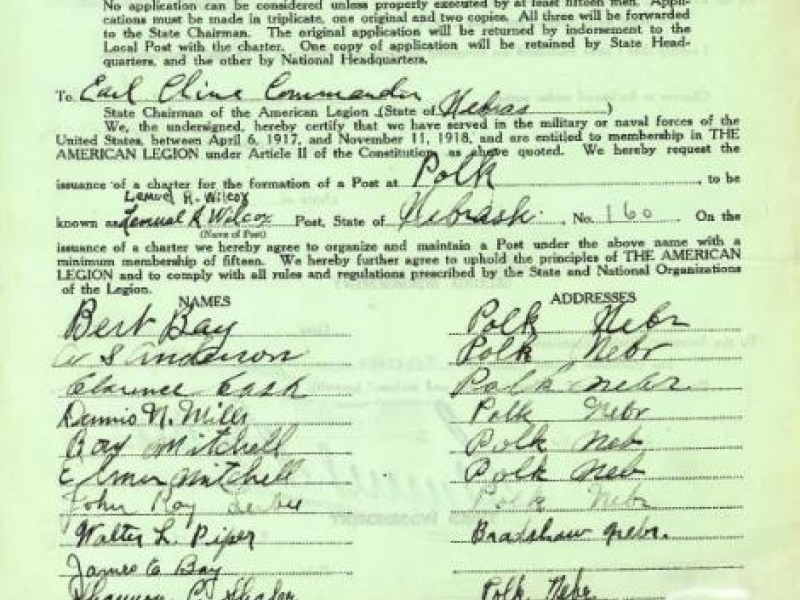 No application can be considered unless properly executed by at least fifteen men. Appli-
cations must be made in triplicate, one original and two copies. All three will be forwarded
to the State Chairman. The original application will be returned by indorsement to the
Local Post with the charter. One copy of application will be retained by State Head-
quarters, and the other by National Headquarters.
To Earl Cline Commander
State Chairman of the American Legion (State of Nebras )
We, the undersigned, hereby certify that we have served in the military or naval forces of the
United States, between April 6, 1917, and November 11, 1918, and are entitled to membership in THE
AMERICAN LEGION under Article II of the Constitution, as above quoted. We hereby request the
issuance of a charter for the formation of a Post at Polk , to be
Lemuel R. Wilcox
known as Lemual R Wilcox Post, State of Nebrask. , No. 160 On the
(Name of Post)
issuance of a charter we hereby agree to organize and maintain a Post under the above name with a
minimum membership of fifteen. We hereby further agree to uphold the principles of THE AMERICAN
LEGION and to comply with all rules and regulations prescribed by the State and National Organizations
of the Legion.
NAMES ADDRESSES
Bert Bay Polk Nebr
S Anderson Polk Nebr
Clarence Cash Polk Nebr
Dennis N. Mills Polk Nebr
Ray Mitchell Polk Neb
Elmer Mitchell Polk Neb
John Roy Polk Nebr
Walter L. Piper Bradshaw Nebr.
James E Bay
Shannon C. Polk Nebr